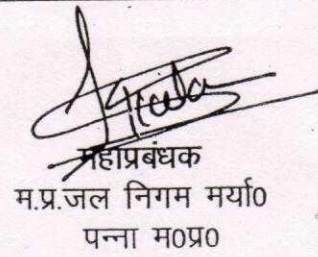 महाप्रबंधक
म.प्र.जल निगम मर्या0
पन्ना म0प्र0